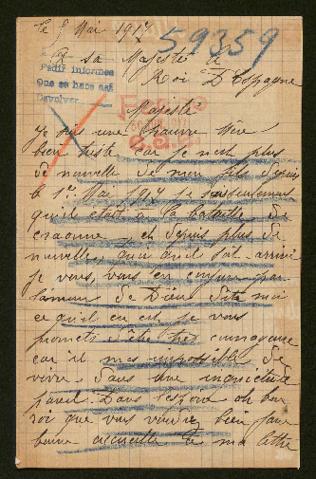 le 8 Mai 1917
59359
A sa Majesté le
Roi D'Espagne
Pedir informes
Que se hace así
Devolver
Majesté
Je suis une Pauvre Mère
bien triste car je n'est plus
de nouvelle de mon fils depuis
le 1er Mai 1917 je sais seulement
qu'il était a la bataille de
craonne et depuis plus de
nouvelles quoi qu'il soit arrivé
je vous, vous en conjure par
l'amour de Dieu dite moi
ce qu'il en est je vous
promets d'être très courageuse
car il mes impossible de
vivre dans une inquiétude
pareil. Dans l'espoir oh bon
roi que vous voudrez bien faire
bonne accueille a ma lettre